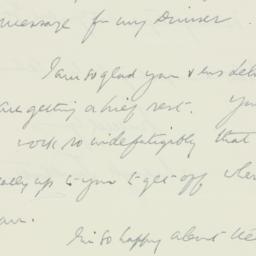 message for my Dinner.
I am so glad you &
are getting a brief rest. You
work so indefatigably that
up to you to get off, when
I'm so happy about